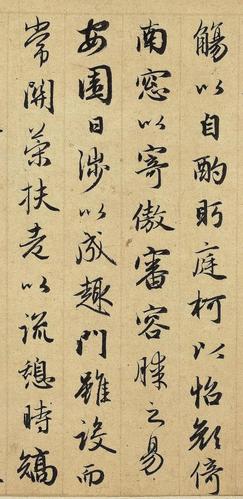 觴以自酌眄庭柯以怡顔倚
南窓以寄傲審容膝之易
安園日渉以成趣門雖設而
常關策扶老以流憩時矯